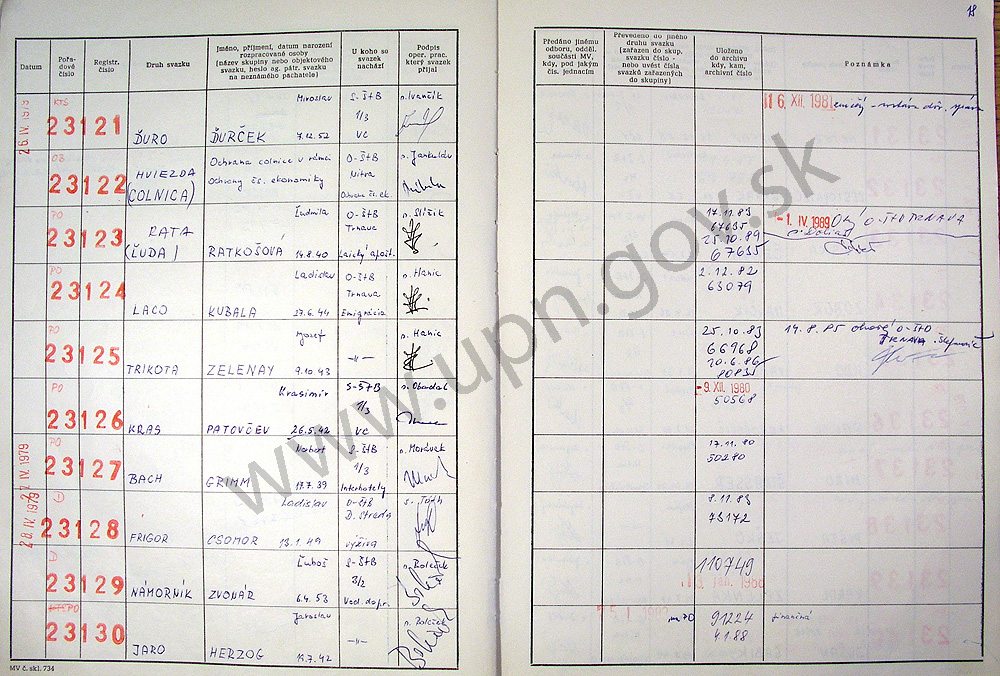 18
Datum
Pořa-
dové
číslo
Registr.
číslo
Druh svazku
Jméno, příjmení, datum narození
rozpracované osoby
(název skupiny nebo objektového
svazku, heslo ag. pátr. svazku
na neznámého pachatele)
U koho se
svazek
nachází
Podpis
oper. prac.
který svazek
přijal
Předáno jinému
odboru, odděl.
součásti MV,
kdy, pod jakým
čís. jednacím
Převedeno do jiného
druhu svazku
(zařazen do skup.
svazku číslo -
nebo uvést čísla
svazků zařazených
do skupiny)
Uloženo
do archivu
kdy, kam,
archivní číslo
Poznámka
26 IV. 1979
KTS
23121
ĎURO
Miroslav
ĎURČEK 7.12.52
S-ŠtB
1/3
VC
n. Ivančík
16. XII. 1981
OB
23122
HVIEZDA
(COLNICA)
Ochrana colnice v rámci
Ochrany čs. ekonomiky
O-ŠtB
Nitra
Ochrana čs. ek.
n. Jankulár
PO
23123
RATA
(ĽUDA)
Ľudmila
RATKOŠOVÁ 14.8.40
O-ŠtB
Trnava
Laický apošt.
n. Slížik
17.11.83
67635
25.10.89
67635
-1. IV. 1989
O-ŠtB TRNAVA
PO
23124
LACO
Ladislav
KUBALA 27.6.44
O-ŠtB
Trnava
Emigrácia
n. Hanic
2.12.82
63079
PO
23125
TRIKOTA
Jozef
ZELENAY 9.10.43
-"-
n. Hanic
25.10.83
66968
20.6.86
80835
14.8.85
TRNAVA
PO
23126
KRAS
Krasimir
PATOVČEV 26.5.42
S-ŠTB
1/3
VC
n. Obadal
-9. XII. 1980
50568
2. IV. 1979
PO
23127
BACH
Norbert
GRIMM 17.7.39
S-ŠtB
1/3
Interhotely
n. Morávek
17.11.80
50280
28 IV. 1979
D
23128
FRIGOR
Ladislav
CSOMOR 13.1.49
O-ŠtB
D. Streda
výživa
s. Tóth
8.11.83
73172
D
23129
NÁMORNÍK
Ľuboš
ZVONÁR 6.4.53
S-ŠtB
3/2
Ved. dopr.
n. Boleček
110749
KTS PO
23130
JARO
Jaroslav
HERZOG 13.7.42
-"-
n. Boleček
91224
4188
MV č. skl. 734
www.upn.gov.sk